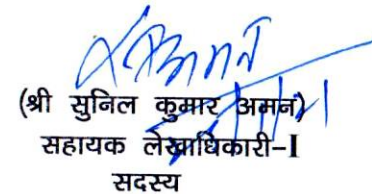 (श्री सुनिल कुमार अमन)
सहायक लेखाधिकारी-I
सदस्य